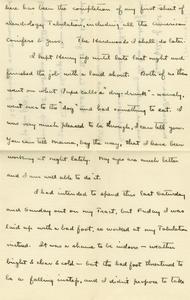 here has been the completion of my first sheet of
Dendrology Tabulation, including all the American
conifers & yews. The Hardwoods I shall do later.
I kept Henry up until late last night and
finished the job with a loud shout. Both of us then
went on what Pupe calls a "dog-drunk" – namely,
went over to the "dog" and had something to eat. I
was very much pleased to be through, I can tell you.
You can tell Mamma, by the way, that I have been
working at night lately. My eyes are much better
and I am well able to do it.
I had intended to spend this last Saturday
and Sunday out on my Tract, but Friday I was
laid up with a bad foot, so worked at my Tabulation
instead. It was a shame to be indoors – weather
bright & clear & cold – but the bad foot threatened to
be a falling instep, and I didn't propose to take